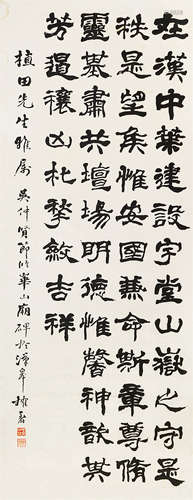 在漢中葉建設宇堂山嶽之守是
秩是望矦惟安國兼命斯章尊脩
靈基肅共壇場明德惟馨神歆其
芳遏禳凶札揫斂吉祥
植田先生雅屬 吳仲 節臨華山廟碑於